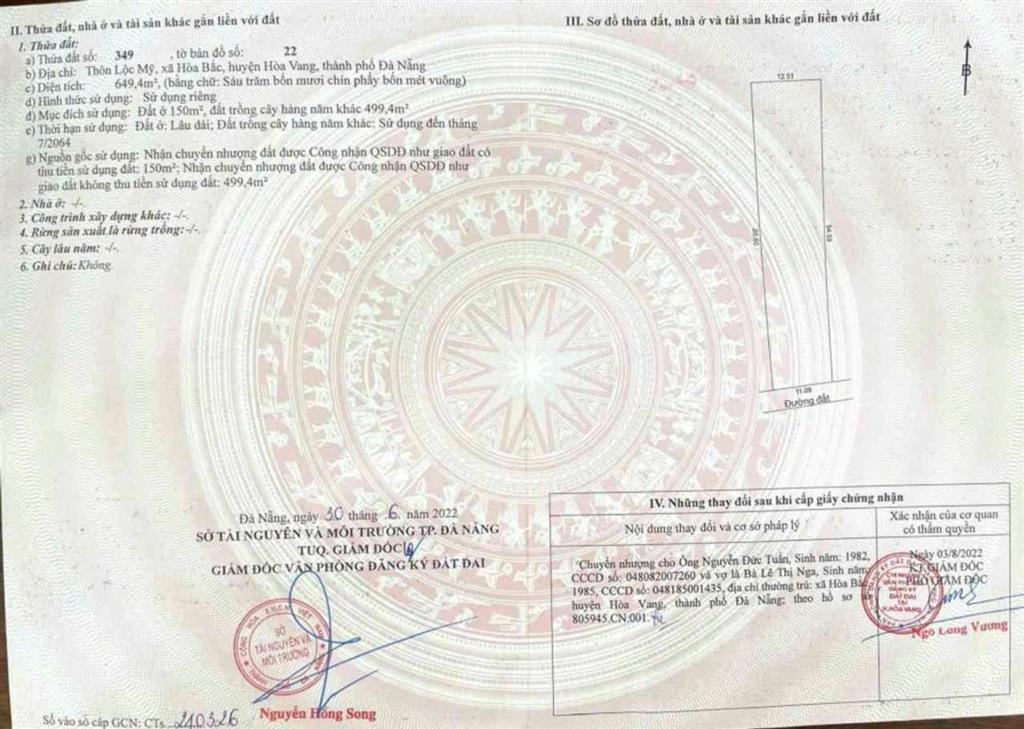 II. Thửa đất, nhà ở và tài sản khác gắn liền với đất
1. Thửa đất:
a) Thửa đất số: 349 , tờ bản đồ số: 22
b) Địa chỉ: Thôn Lộc Mỹ, xã Hòa Bắc, huyện Hòa Vang, thành phố Đà Nẵng
c) Diện tích: 649,4m², (bằng chữ: Sáu trăm bốn mươi chín phẩy bốn mét vuông)
d) Hình thức sử dụng: Sử dụng riêng
đ) Mục đích sử dụng: Đất ở 150m², đất trồng cây hàng năm khác 499,4m²
e) Thời hạn sử dụng: Đất ở: Lâu dài; Đất trồng cây hàng năm khác: Sử dụng đến tháng
7/2064
g) Nguồn gốc sử dụng: Nhận chuyển nhượng đất được Công nhận QSDĐ như giao đất có
thu tiền sử dụng đất: 150m²; Nhận chuyển nhượng đất được Công nhận QSDĐ như
giao đất không thu tiền sử dụng đất: 499,4m²
2. Nhà ở: -/-.
3. Công trình xây dựng khác: -/-.
4. Rừng sản xuất là rừng trồng: -/-.
5. Cây lâu năm: -/-.
6. Ghi chú: Không.
Đà Nẵng, ngày 30 tháng 6 năm 2022
SỞ TÀI NGUYÊN VÀ MÔI TRƯỜNG TP. ĐÀ NẴNG
TUQ. GIÁM ĐỐC
GIÁM ĐỐC VĂN PHÒNG ĐĂNG KÝ ĐẤT ĐAI
SỞ
TÀI NGUYÊN VÀ
MÔI TRƯỜNG
Nguyễn Hồng Song
Số vào sổ cấp GCN: CTs
III. Sơ đồ thửa đất, nhà ở và tài sản khác gắn liền với đất
B
12.51
54.59
11.09
Đường đất
IV. Những thay đổi sau khi cấp giấy chứng nhận
Nội dung thay đổi và cơ sở pháp lý
Xác nhận của cơ quan
có thẩm quyền
Chuyển nhượng cho Ông Nguyễn Đức Tuấn, Sinh năm: 1982,
CCCD số: 048082007260 và vợ là Bà Lê Thị Nga, Sinh năm:
1985, CCCD số: 048185001435, địa chỉ thường trú: xã Hòa Bắc,
huyện Hòa Vang, thành phố Đà Nẵng; theo hồ sơ số
805945.CN.001.
Ngày 03/8/2022
KT.GIÁM ĐỐC
PHÓ GIÁM ĐỐC
Ngô Long Vương